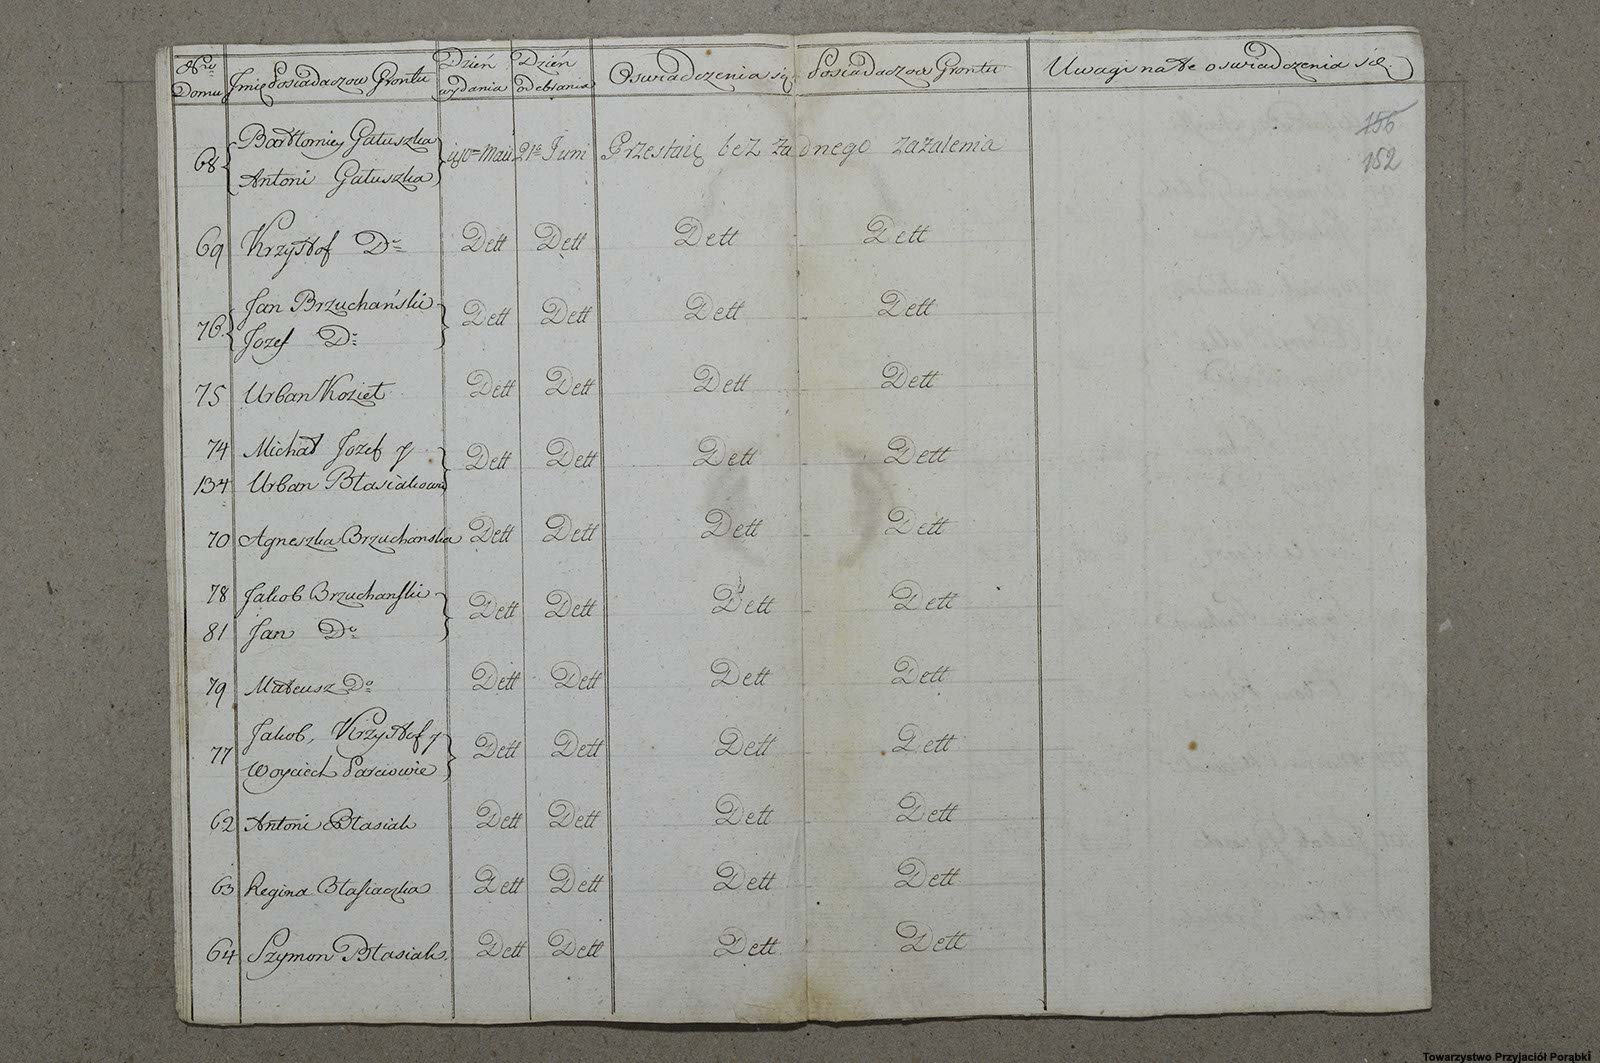 Nro Domu Jmię Posiadaczow Gruntu Dzień wydania Dzień odebrania Oswiadczenia się Posiadaczow Gruntu Uwagi na te oswiadczenia się
156
152
68 Bartłomiey Gałuszka Antoni Gałuszka Maii 21a Juni Przestaię bez żadnego zażalenia
69 Krzysztof Do Dett Dett Dett Dett
76. Jan Brzuchański Jozef Do Dett Dett Dett Dett
75 Urban Kozieł Dett Dett Dett Dett
74 Michał Jozef y
134 Urban Błasiakowie Dett Dett Dett Dett
70 Agneszka Brzuchanska Dett Dett Dett Dett
78 Jakob Brzuchanski
81 Jan Do Dett Dett Dett Dett
79 Mateusz Do Dett Dett Dett Dett
77 Jakob, Krzysztof y Woyciech Dett Dett Dett Dett
62 Antoni Błasiak Dett Dett Dett Dett
63 Regina Błasiaczka Dett Dett Dett Dett
64 Szymon Błasiak. Dett Dett Dett Dett
Towarzystwo Przyjaciół Porąbki